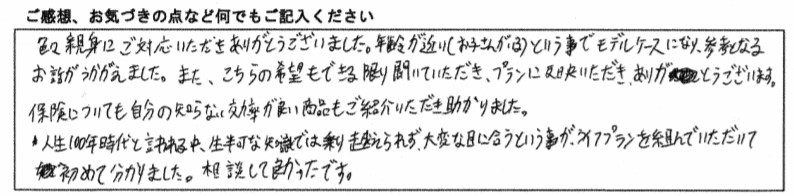 ご感想、お気づきの点など何でもご記入ください
色々親身にご対応いただきありがとうございました。年齢が近い(お子さんがいる)という事でモデルケースになり、参考となる
お話がうかがえました。また、こちらの希望もできる限り聞いていただき、プランに反映いただき、ありがとうございます。
保険についても自分の知らない効率が良い商品もご紹介いただき助かりました。
・人生100年時代と言われる中、生半可な知識では乗り越えられず、大変な目に合うという事が、ライフプランを組んでいただいて
初めて分かりました。相談して良かったです。